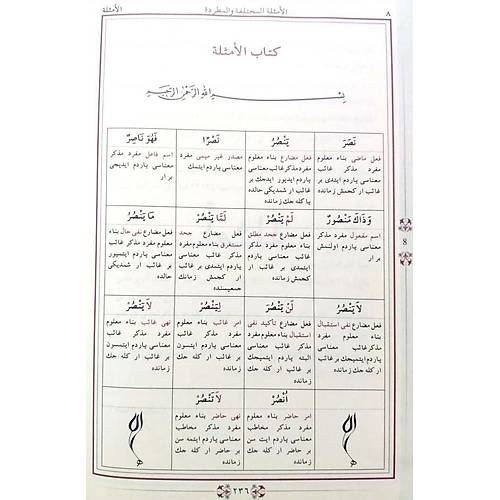 ٨ الأمثلة المختلفة والمطردة الأمثلة
كتاب الأمثلة
بسم الله الرحمن الرحيم
نَصَرَ يَنْصُرُ نَصْرًا فَهُوَ نَاصِرٌ
فعل ماضى بناء معلوم مفرد مذكر غائب معناسى ياردم ايتدى بر غائب ار كچمش زمانده
فعل مضارع بناء معلوم مفرد مذكر غائب معناسى ياردم ايديور ايدجك بر غائب ار شمديكى حالده يا كله جك زمانده
مصدر غير ميمى مفرد معناسى ياردم ايتمك
اسم فاعل مفرد مذكر معناسى ياردم ايديجى بر ار
وَذَاكَ مَنْصُورٌ لَمْ يَنْصُرْ لَمَّا يَنْصُرْ مَا يَنْصُرُ
اسم مفعول مفرد مذكر معناسى ياردم اولنمش بر ار
فعل مضارع جحد مطلق بناء معلوم مفرد مذكر غائب معناسى ياردم ايتمدى بر غائب ار كچمش زمانده
فعل مضارع جحد مستغرق بناء معلوم مفرد مذكر غائب معناسى ياردم ايتمدى بر غائب ار كچمش زمانك جميعسنده
فعل مضارع نفى حال بناء معلوم مفرد مذكر غائب معناسى ياردم ايتميور بر غائب ار شمديكى حالده
لاَ يَنْصُرُ لَنْ يَنْصُرَ لِيَنْصُرْ لاَ يَنْصُرْ
فعل مضارع نفى استقبال بناء معلوم مفرد مذكر غائب معناسى ياردم ايتميجك بر غائب ار كله جك زمانده
فعل مضارع تأكيد نفى استقبال بناء معلوم مفرد مذكر غائب معناسى البته ياردم ايتميجك بر غائب ار كله جك زمانده
امر غائب بناء معلوم مفرد مذكر غائب معناسى ياردم ايتسون بر غائب ار كله جك زمانده
نهى غائب بناء معلوم مفرد مذكر غائب معناسى ياردم ايتمسون بر غائب ار كله جك زمانده
اُنْصُرْ لاَ تَنْصُرْ
امر حاضر بناء معلوم مفرد مذكر مخاطب معناسى ياردم ايت سن بر حاضر ار كله جك زمانده
نهى حاضر بناء معلوم مفرد مذكر مخاطب معناسى ياردم ايتمه سن بر حاضر ار كله جك زمانده
8
٢٣٦